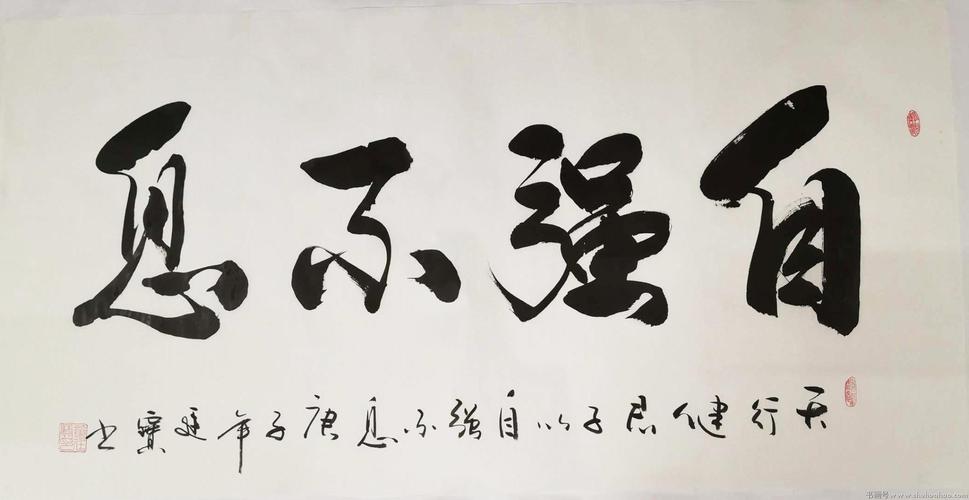 自强不息
天行健君子以自强不息庚子年廷寶书
书画号www.shuhuahao.com